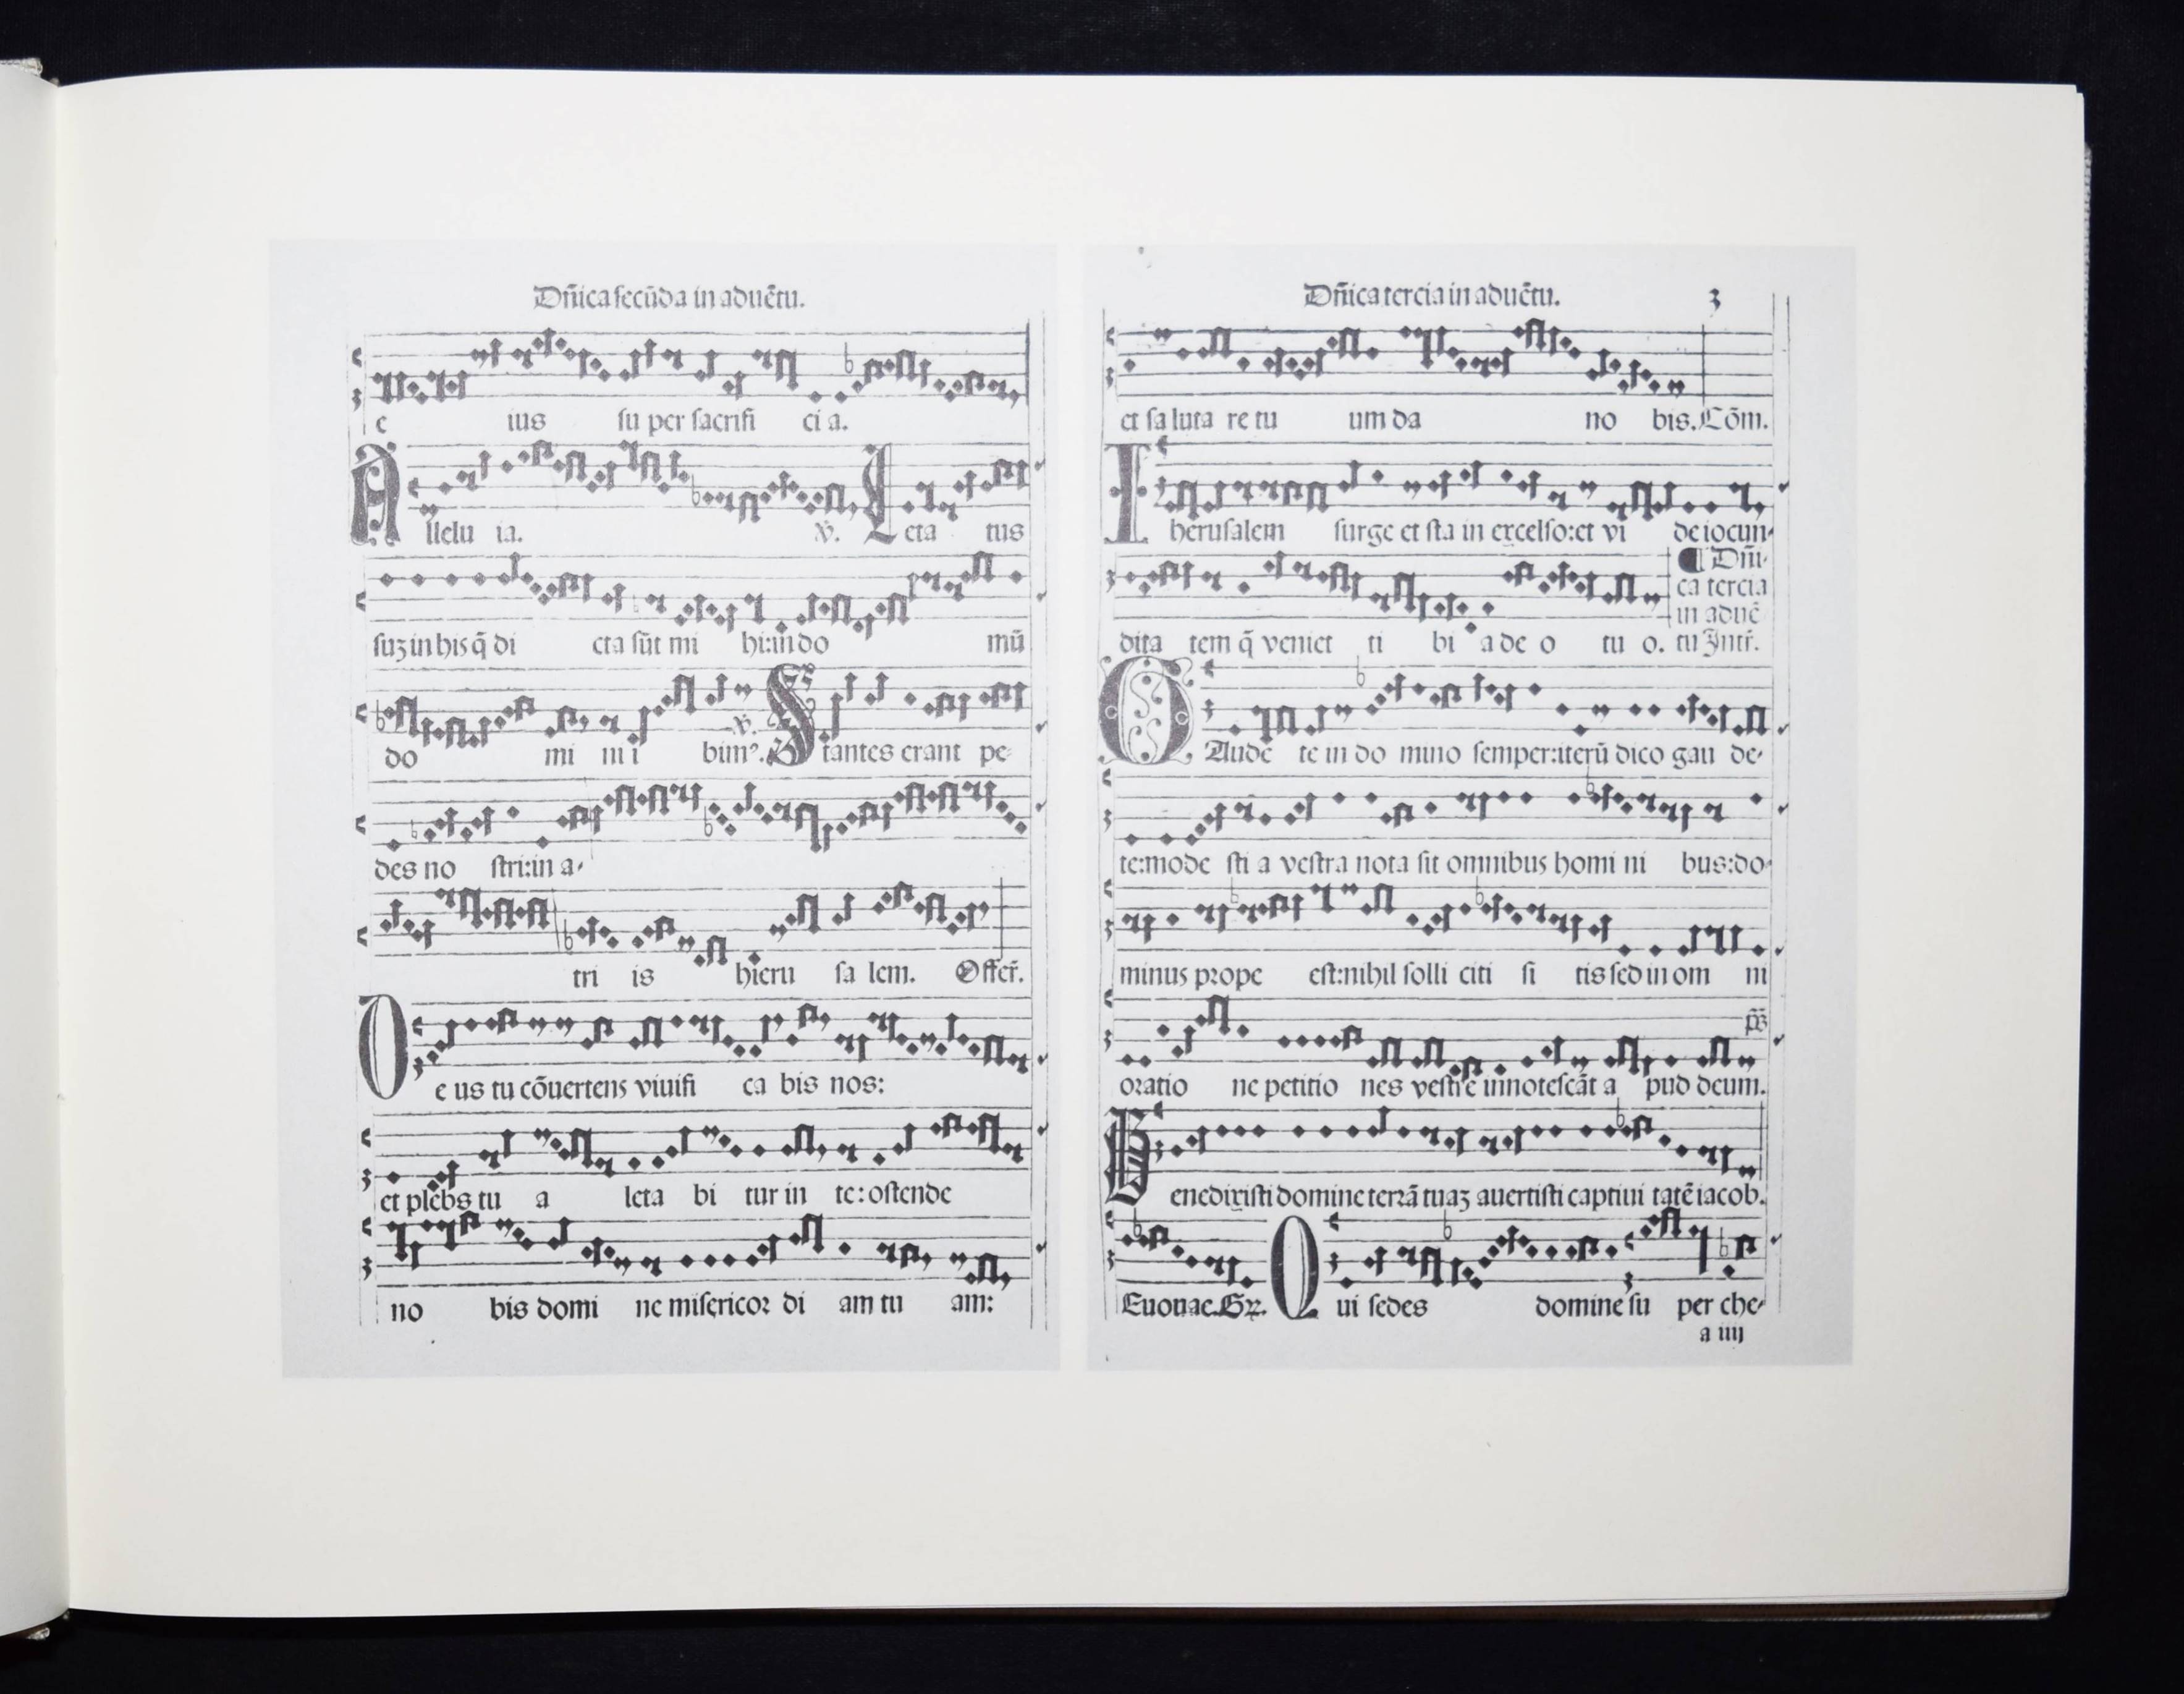 Dñica secūda in aduētu.
e ius su per sacrifi ci a.
Allelu ia. ℣. Leta tus
suʒ in his q̄ di cta sūt mi hi: in do mū
do mi ni ibimꝰ. ℣. Stantes erant pe-
des no stri: in a-
tri is hieru sa lem. Offer̄.
De us tu cōuertens viuifi ca bis nos:
et plebs tu a leta bi tur in te: ostende
no bis domi ne misericoꝛ di am tu am:
Dñica tercia in aduētu. 3
et sa luta re tu um da no bis. Cōm.
Iherusalem surge et sta in excelso: et vi de iocun-
dita tem q̄ veniet ti bi a de o tu o.
¶ Dñi-
ca tercia
in aduē
tu Intr̄.
GAude te in do mino semper: iterū dico gau de-
te: mode sti a vestra nota sit omnibus homi ni bus: do-
minus pꝛope est: nihil solli citi si tis sed in om ni
p̄s̄
oꝛatio ne petitio nes vestre innotescāt a pud deum.
Benedixisti domine terrā tuaʒ auertisti captiui tatē iacob.
Euouae. Gꝝ. Qui sedes domine su per che-
a iiij